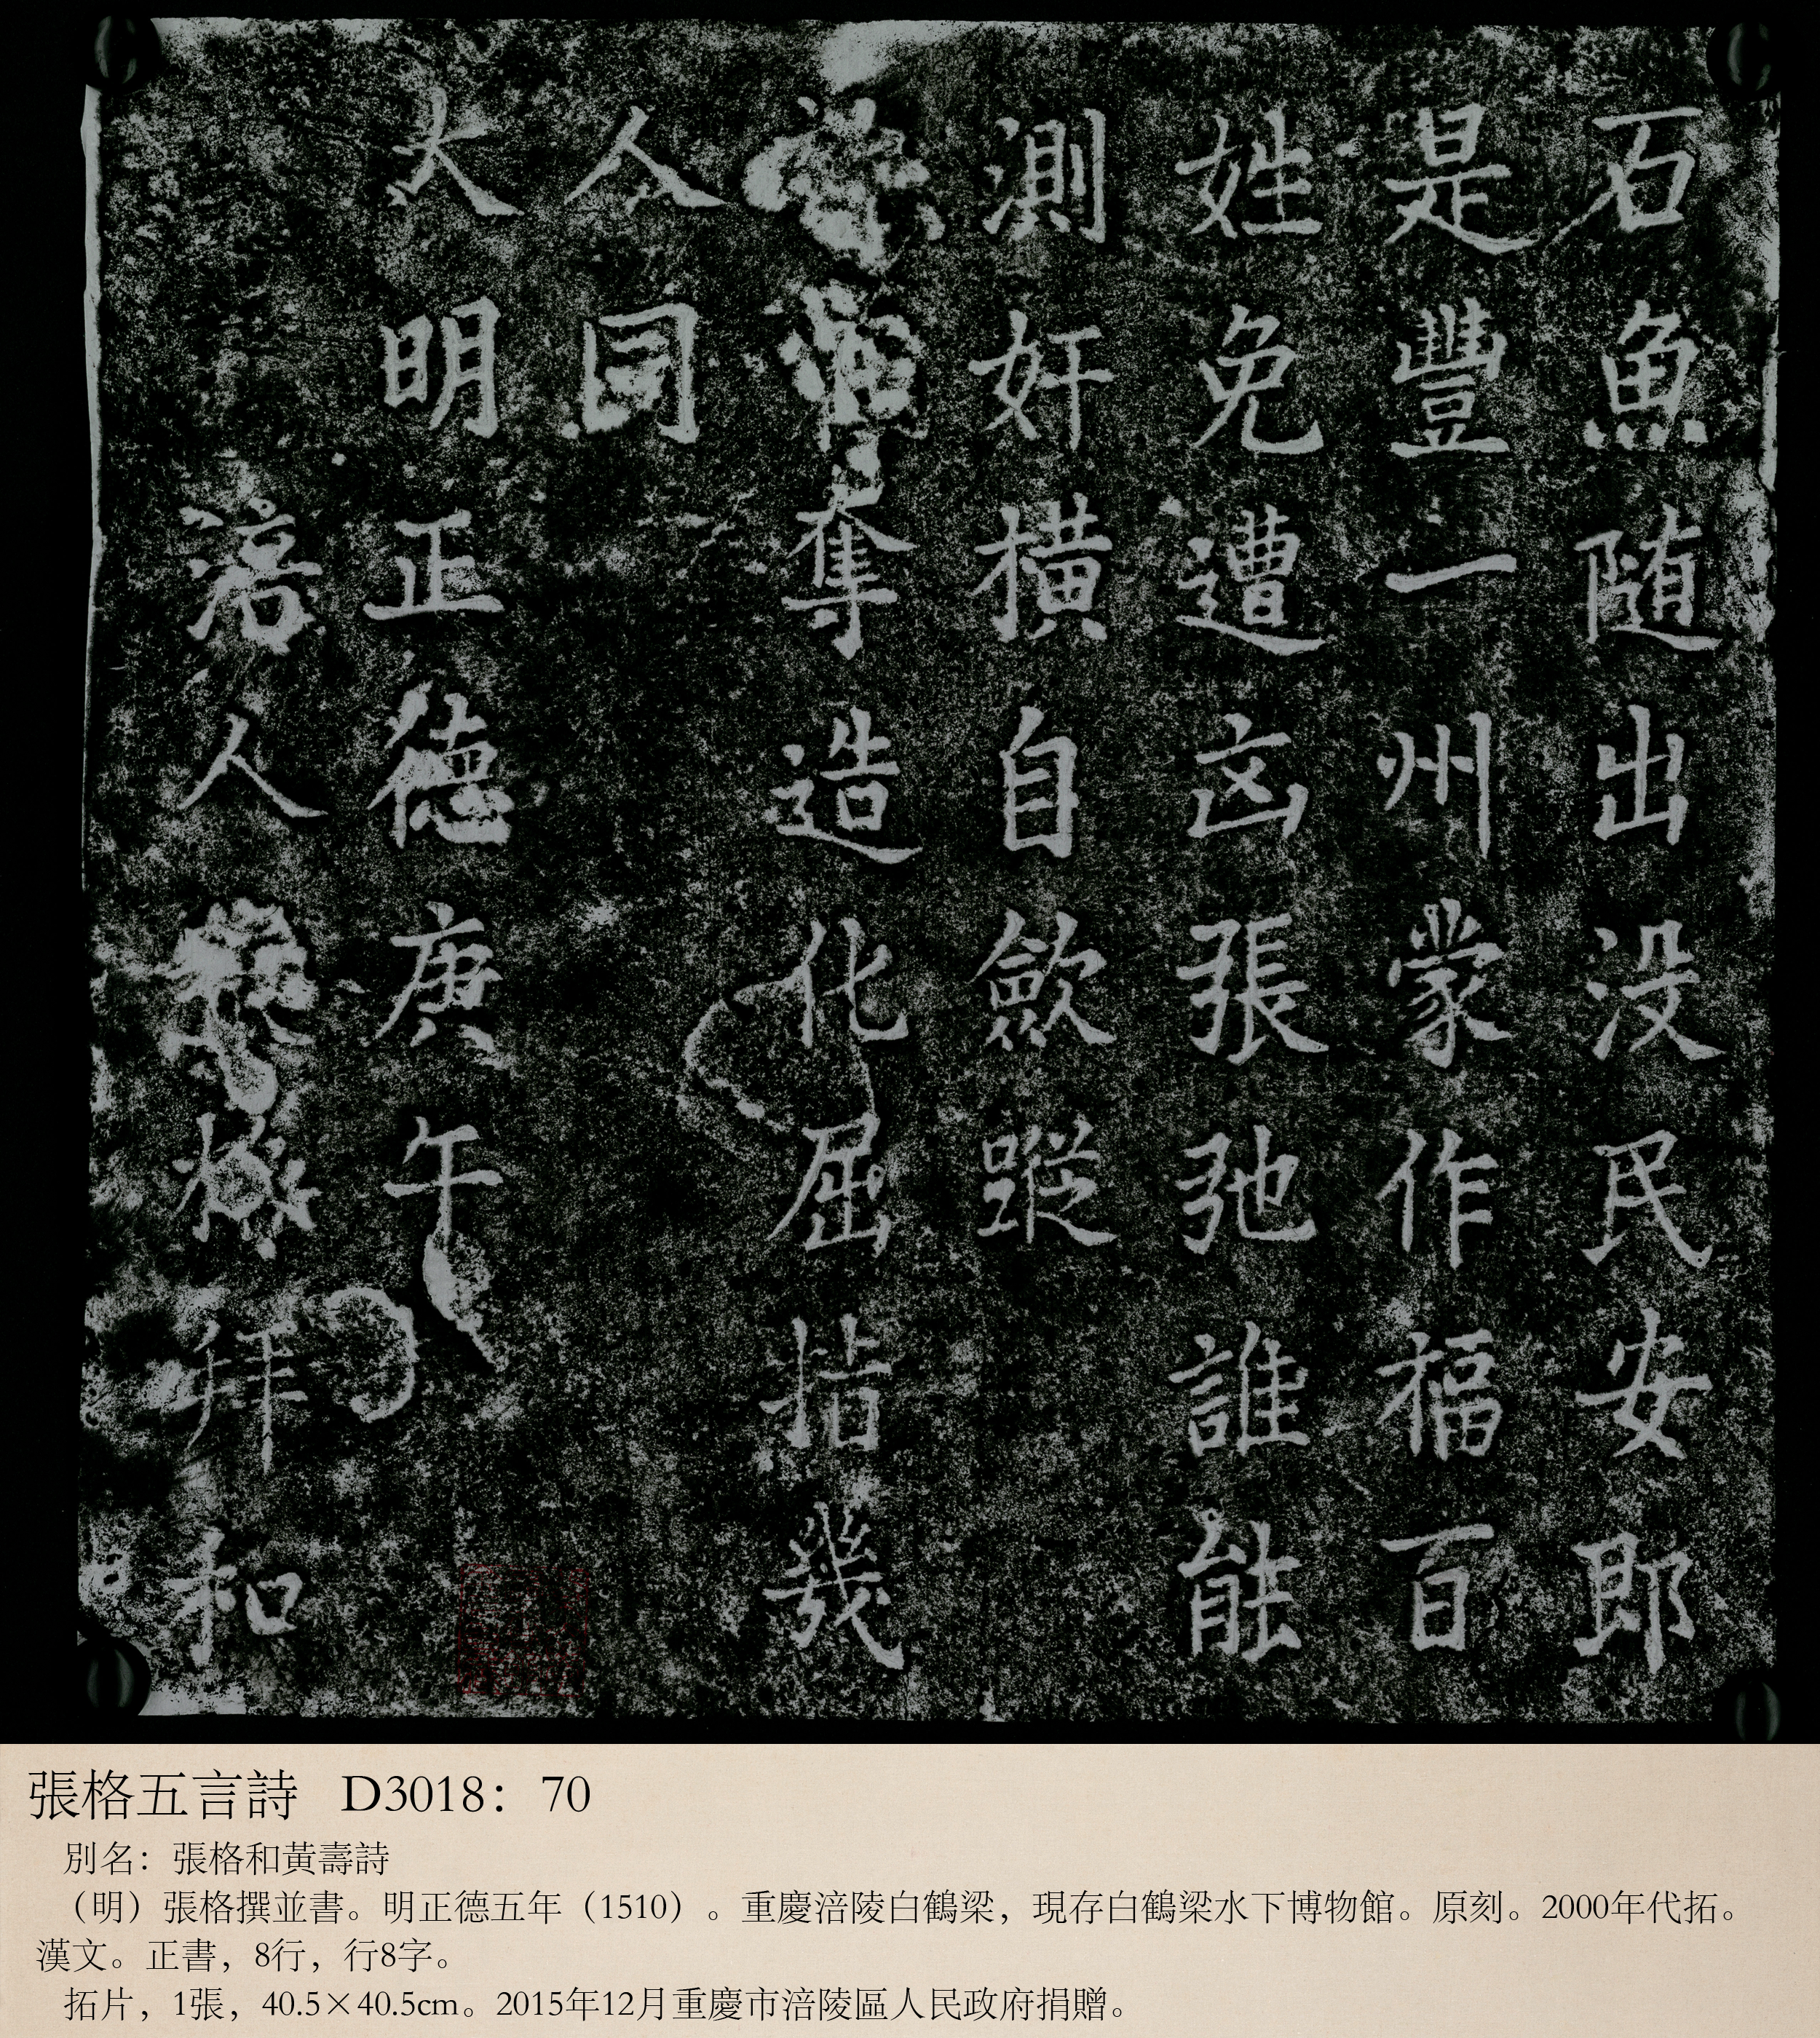 石魚隨出没民安郎
是豐一州蒙作福百
姓免遭凶張弛誰能
測奸橫自歛蹤
奪造化屈指幾
人同
大明正德庚午
涪人 拜和
張格五言詩 D3018：70
別名：張格和黃壽詩
（明）張格撰並書。明正德五年（1510）。重慶涪陵白鶴梁，現存白鶴梁水下博物館。原刻。2000年代拓。
漢文。正書，8行，行8字。
拓片，1張，40.5×40.5cm。2015年12月重慶市涪陵區人民政府捐贈。